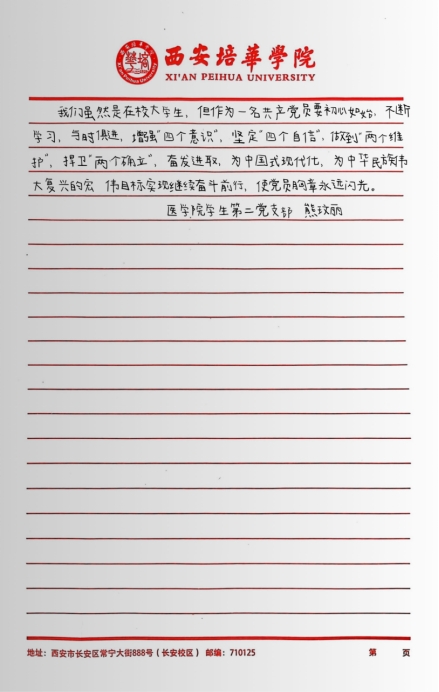 西安培華學院
XI'AN PEIHUA UNIVERSITY
我们虽然是在校大学生，但作为一名共产党员要初心如始，不断
学习，与时俱进，增强"四个意识"，坚定"四个自信"，做到"两个维
护"，捍卫"两个确立"，奋发进取，为中国式现代化，为中华民族伟
大复兴的宏 伟目标实现继续奋斗前行，使党员胸章永远闪光。
医学院学生第二党支部 熊玟丽
地址：西安市长安区常宁大街888号（长安校区） 邮编：710125 第 页